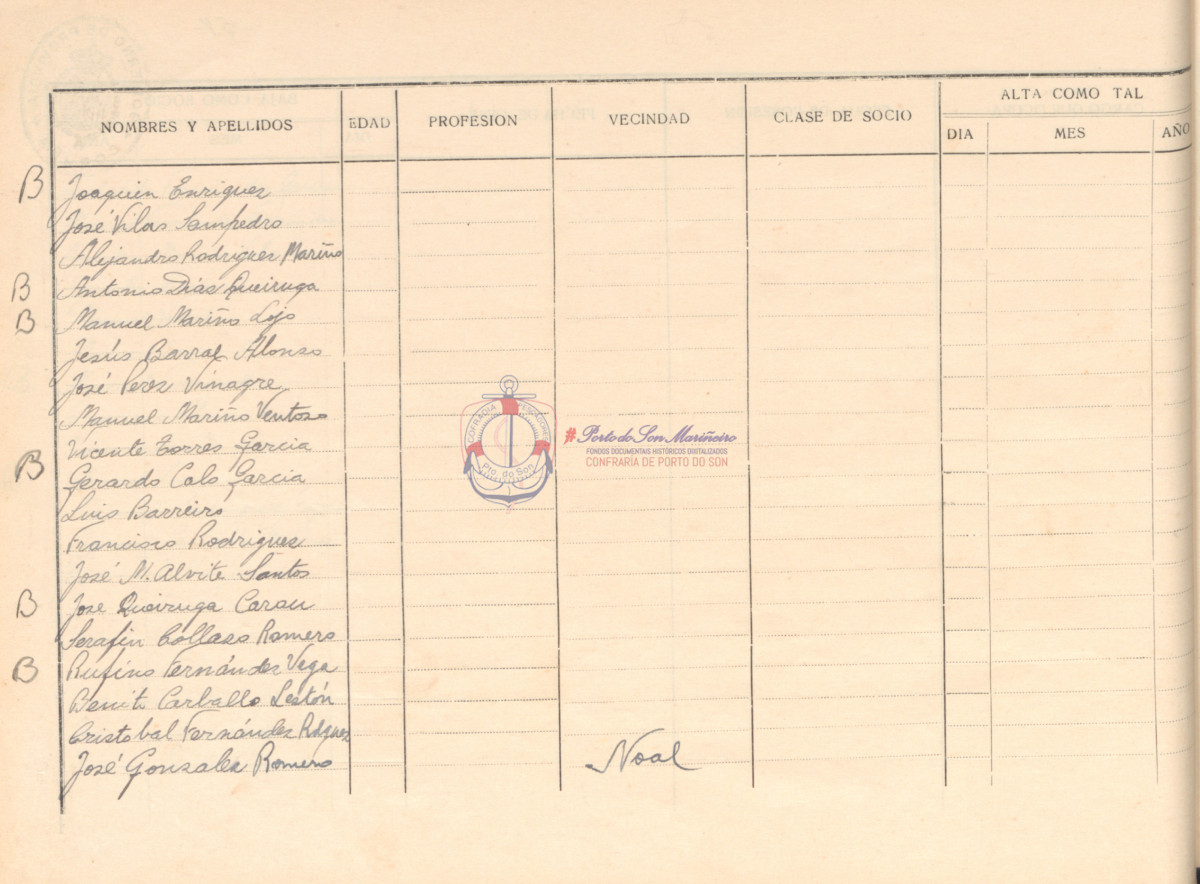 ALTA COMO TAL
NOMBRES Y APELLIDOS EDAD PROFESION VECINDAD CLASE DE SOCIO DIA MES AÑO
B Joaquin Enriquez
José Vilas Sampedro
Alejandro Rodriguez Mariño
B Antonio Diaz Queiruga
B Manuel Mariño Lojo
Jesús Barral Alonso
José Perez Vinagre
Manuel Mariño Ventoso
Vicente Torres Garcia
B Gerardo Calo Garcia
Luis Barreiro
Francisco Rodriguez
José M. Alvite Santos
B Jose Queiruga Carou
Serafin Collazo Romero
B Rufino Fernández Vega
Benito Carballo Lestón
Cristobal Fernández Rdguez
José Gonzalez Romero Noal
COFRADIA PESCADORES
Pto. do Son
#Porto do Son Mariñeiro
FONDOS DOCUMENTAIS HISTÓRICOS DIXITALIZADOS
CONFRARÍA DE PORTO DO SON